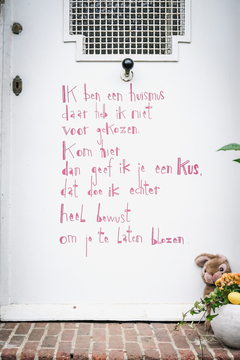 Ik ben een huismus
daar heb ik niet
voor gekozen.
Kom hier
dan geef ik je een Kus,
dat doe ik echter
heel bewust
om je te laten blozen.